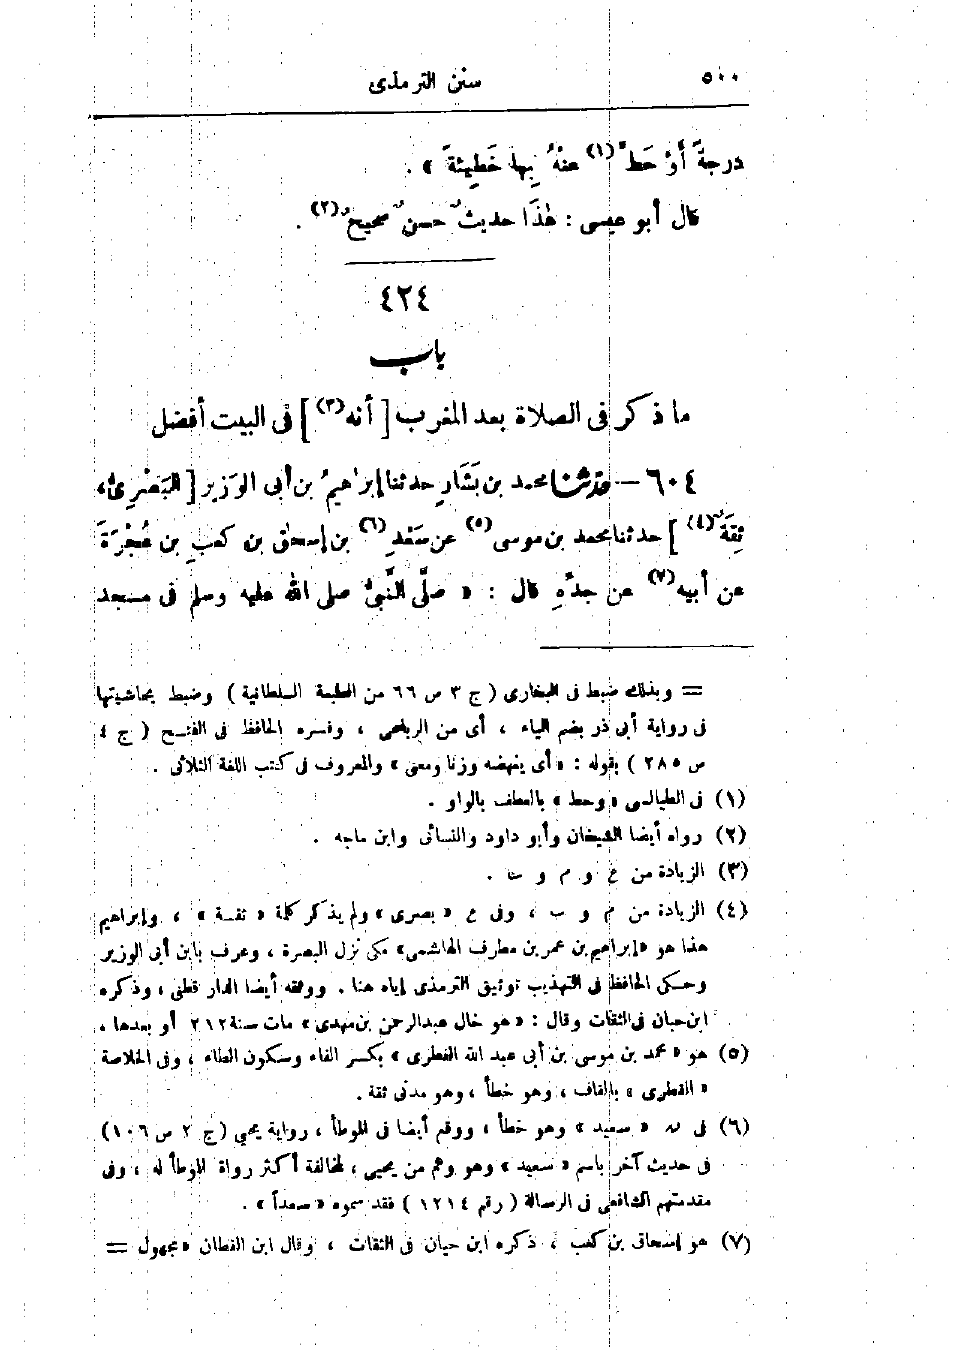 ٥٠٠
سنن الترمذى
درجةً أوْ حَطَّ (١) عنْهُ بِها خَطِيئةً » .
قال أبو عيسى : هٰذَا حديثٌ حسنٌ صحيحٌ (٢) .
٤٢٤
باب
ما ذكر فى الصلاة بعد المغرب [ أنه (٣) ] فى البيت أفضل
٦٠٤ — حدثنا محمد بن بَشَّارٍ حدثنا إبراهيمُ بن أبى الوَزِيرِ [ البَصْرِىُّ ،
ثِقَةٌ (٤) ] حدثنا محمد بن موسى (٥) عن سَعْدِ (٦) بن إسحاق بن كعبِ بن عُجْرَةَ
عن أبيه (٧) عن جدِّهِ قال : « صلَّى النَّبىُّ صلى الله عليه وسلم فى مسجد
= وبذلك ضبط فى البخارى ( ج ٣ ص ٦٦ من الطبعة السلطانية ) وضبط بحاشيتها
فى رواية أبى ذر بضم الياء ، أى من الرباعى ، وفسره الحافظ فى الفتح ( ج ٤
ص ٢٨٥ ) بقوله : « أى ينهضه وزنا ومعنى » والمعروف فى كتب اللغة الثلاثى .
(١) فى الطيالسى « وحط » بالعطف بالواو .
(٢) رواه أيضا الشيخان وأبو داود والنسائى وابن ماجه .
(٣) الزيادة من ع و م و
(٤) الزيادة من م و ب ، وفى ع « بصرى » ولم يذكر كلمة « ثقة » ، وإبراهيم
هذا هو « إبراهيم بن عمر بن مطرف الهاشمى » مكى نزل البصرة ، وعرف بابن أبى الوزير
وحكى الحافظ فى التهذيب توثيق الترمذى إياه هنا . ووثقه أيضا الدار قطنى ، وذكره
ابن حبان فى الثقات وقال : « هو خال عبدالرحمن بن مهدى » مات سنة ٢١٢ أو بعدها .
(٥) هو « محمد بن موسى بن أبى عبد الله الفطرى » بكسر الفاء وسكون الطاء ، وفى الخلاصة
« القطرى » بالقاف ، وهو خطأ ، وهو مدنى ثقة .
(٦) فى « سعيد » وهو خطأ ، ووقع أيضا فى الموطأ ، رواية يحيى ( ج ٢ ص ١٠٦ )
فى حديث آخر باسم « سعيد » وهو وهم من يحيى ، لمخالفة أكثر رواة الموطأ له ، وفى
مقدمتهم الشافعى فى الرسالة ( رقم ١٢١٤ ) فقد سموه « سعداً » .
(٧) هو إسحاق بن كعب ، ذكره ابن حبان فى الثقات ، وقال ابن القطان « مجهول =